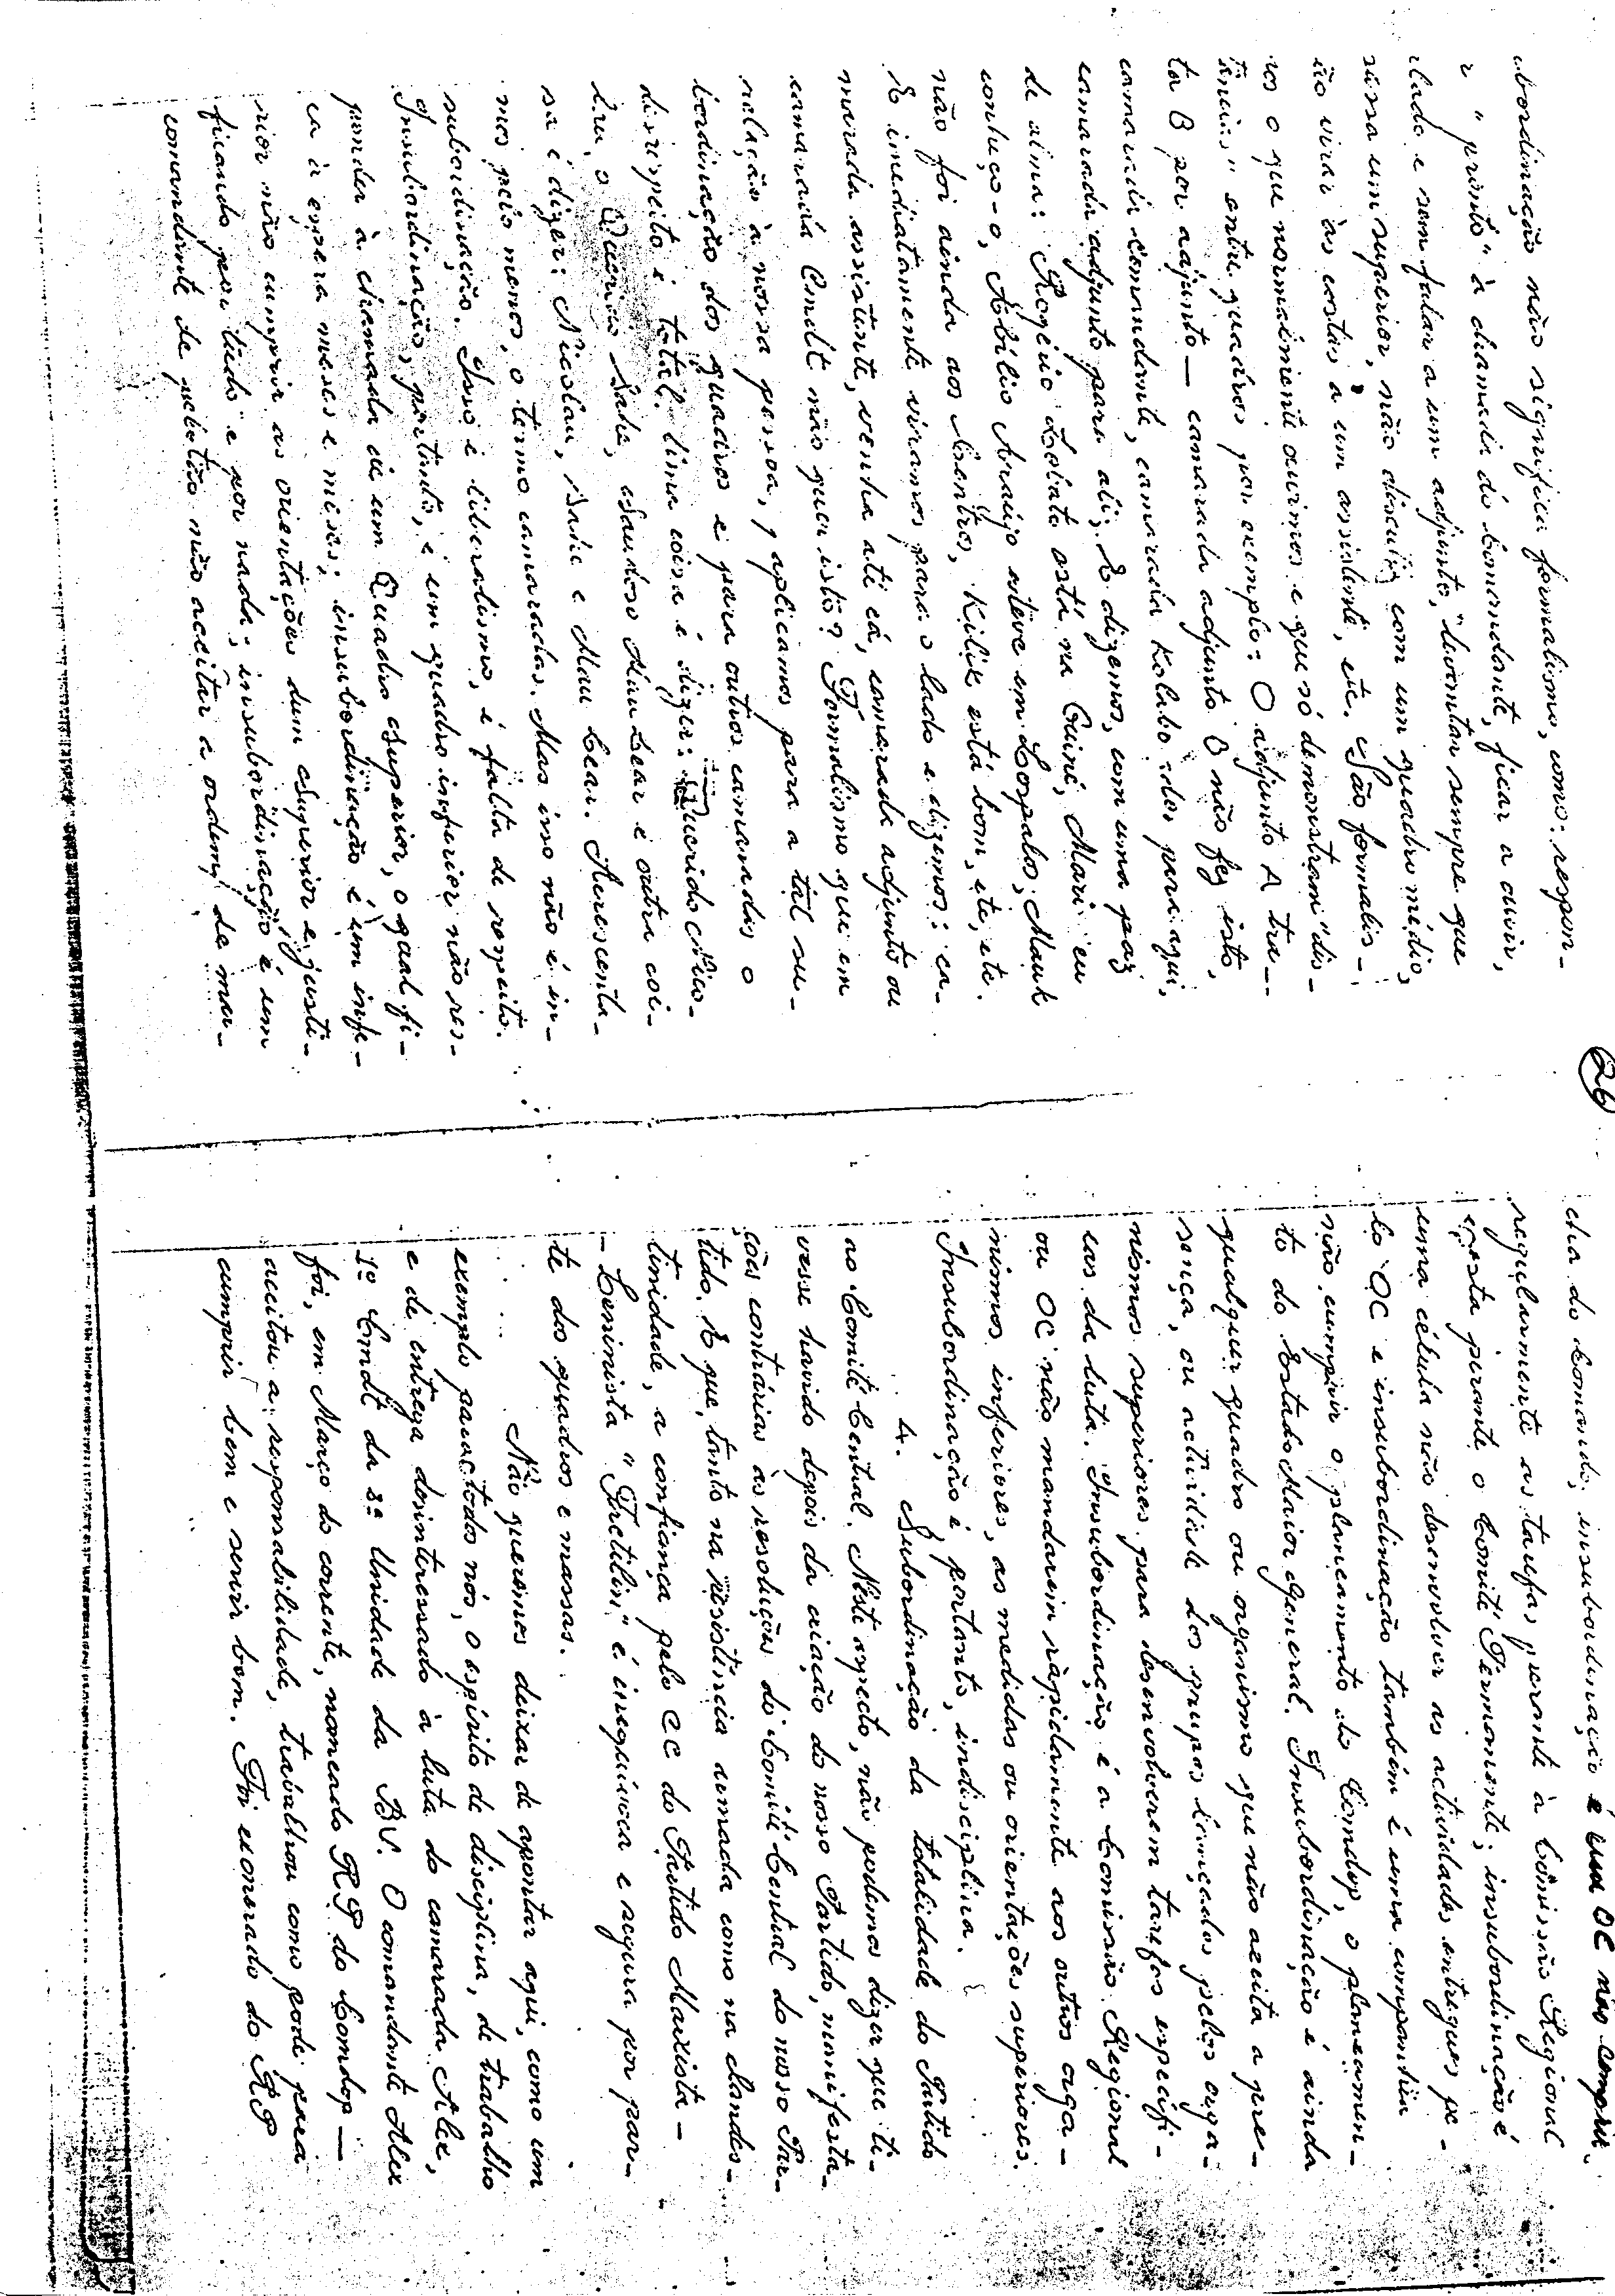 ubordinação não significa formalismo, como: respon-
r "pronto" à chamada do Comandante, ficar a ouvir,
calado e sem falar a um adjunto, levantar sempre que
passa um superior, não discutir com um quadro médio,
não virar às costas a um assistente, etc. São formalis-
mos o que normalmente ouvimos e que só demonstram "dis-
tâncias" entre quadros por exemplo: O adjunto A tra-
ta B por adjunto — camarada adjunto B não fez isto,
camarada comandante, camarada Kolabo idos para aqui,
camarada adjunto para ali; E dizemos, com uma paz
de alma: Rogério Lobato está na Guiné, Mari eu
conheço-o, Abílio Araújo esteve em Lospalos, Mauk
não foi ainda aos Centros, Kilik está bom, etc, etc.
E imediatamente viramos para o lado e dizemos: ca-
marada assistente, venha até cá, camarada adjunto ou
camarada Cmdt não quer isto? Formalismo que em
relação à nossa pessoa, aplicamos para a tal su-
bordinação dos quadros e para outros camaradas o
disrespeito é total. Uma coisa é dizer: Querido Cico-
Lru, o Querido Sahe, saudoso Mau Lear e outra coi-
sa é dizer: Nicolau, Sahe e Mau Lear. Acrescenta-
mos pelo menos, o termo camaradas. Mas isso não é in-
subordinação. Isso é liberalismo, é falta de respeito.
Insubordinação, portanto, é um quadro inferior não res-
ponder à chamada de um Quadro Superior, o qual fi-
ca à espera meses e meses; insubordinação é um infe-
rior não cumprir as orientações dum superior e justi-
ficando por tudo e por nada; insubordinação é um
comandante de pelotão não aceitar a ordem, de mar-
26
cha do Comando; insubordinação é um OC não cumprir
regularmente as tarefas, perante à Comissão Regional
e esta perante o Comité Permanente; insubordinação é
uma célula não desenvolver as actividades entregues pe-
lo OC e insubordinação também é uma companhia
não cumprir o planeamento do Comdop, o planeamen-
to do Estado Maior General. Insubordinação é ainda
qualquer quadro ou organismo que não aceita a pre-
sença, ou actividade dos grupos lançados pelos orga-
nismos superiores para desenvolverem tarefas específi-
cas da luta. Insubordinação é a Comissão Regional
ou OC não mandarem ràpidamente aos outros orga-
nismos inferiores, as medidas ou orientações superiores.
Insubordinação é, portanto, indisciplina.
4. Subordinação da totalidade do Partido
ao Comité Central. Neste aspecto, não podemos dizer que ti-
vesse havido depois da criação do nosso Partido, manifesta-
ções contrárias às resoluções do Comité Central do nosso Par-
tido. E que, tanto na resistência armada como na clandes-
tinidade, a confiança pelo CC do Partido Marxista-
-Leninista "Fretilin" é inequívoca e segura por par-
te dos quadros e massas.
Não queremos deixar de apontar aqui, como um
exemplo para todos nós, o espírito de disciplina, de trabalho
e de entrega desinteressado à luta do camarada Alex,
1º Cmdt da 3ª Unidade da BV. O comandante Alex
foi, em Março do corrente, nomeado RP do Comdop —
aceitou a responsabilidade, trabalhou como pode para
cumprir bem e servir bem. Foi exonerado do RP